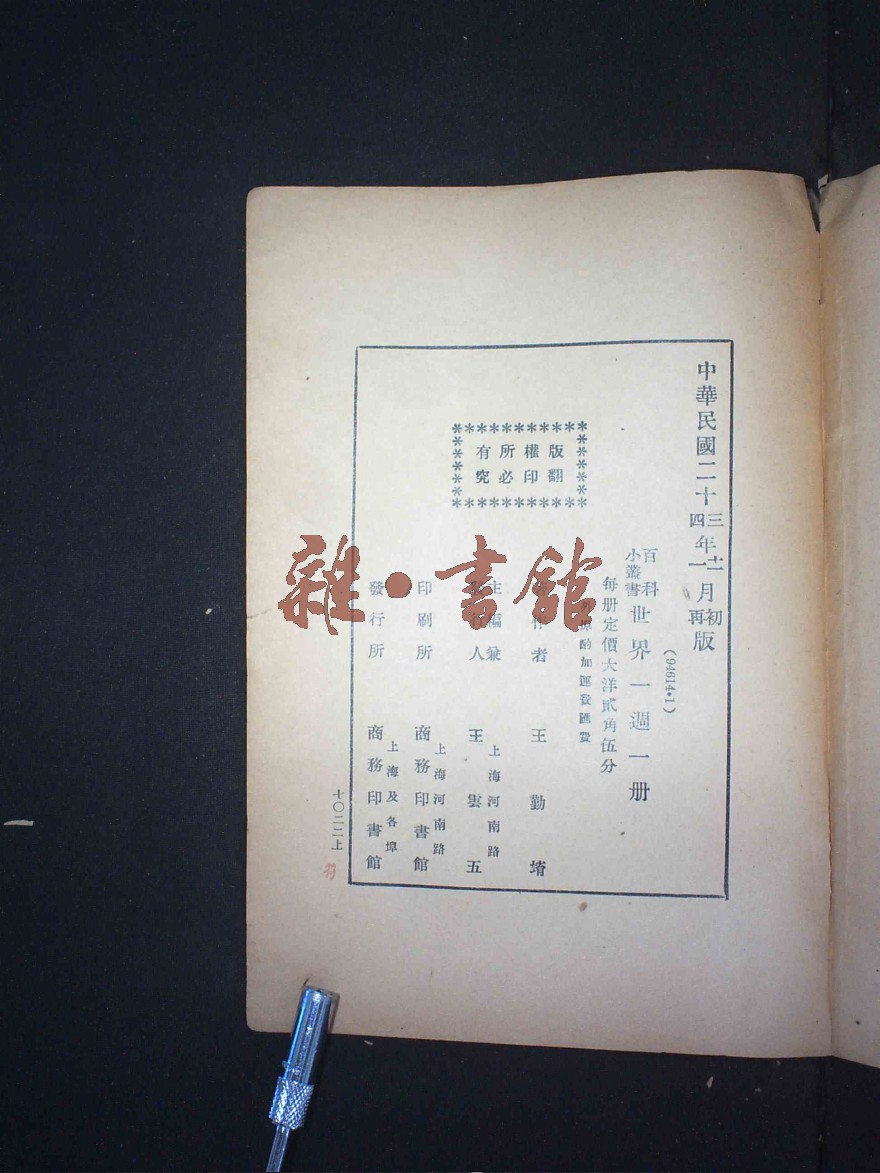 中華民國二十三四年十二一月初再版
(94614·1)
百科小叢書 世界一週一册
每册定價大洋貳角伍分
外埠酌加運費匯費
版權所有
翻印必究
著作者 王勤堉
主編兼發行人 上海河南路 王雲五
印刷所 上海河南路 商務印書館
發行所 上海及各埠 商務印書館
七〇二二上
雜·書館